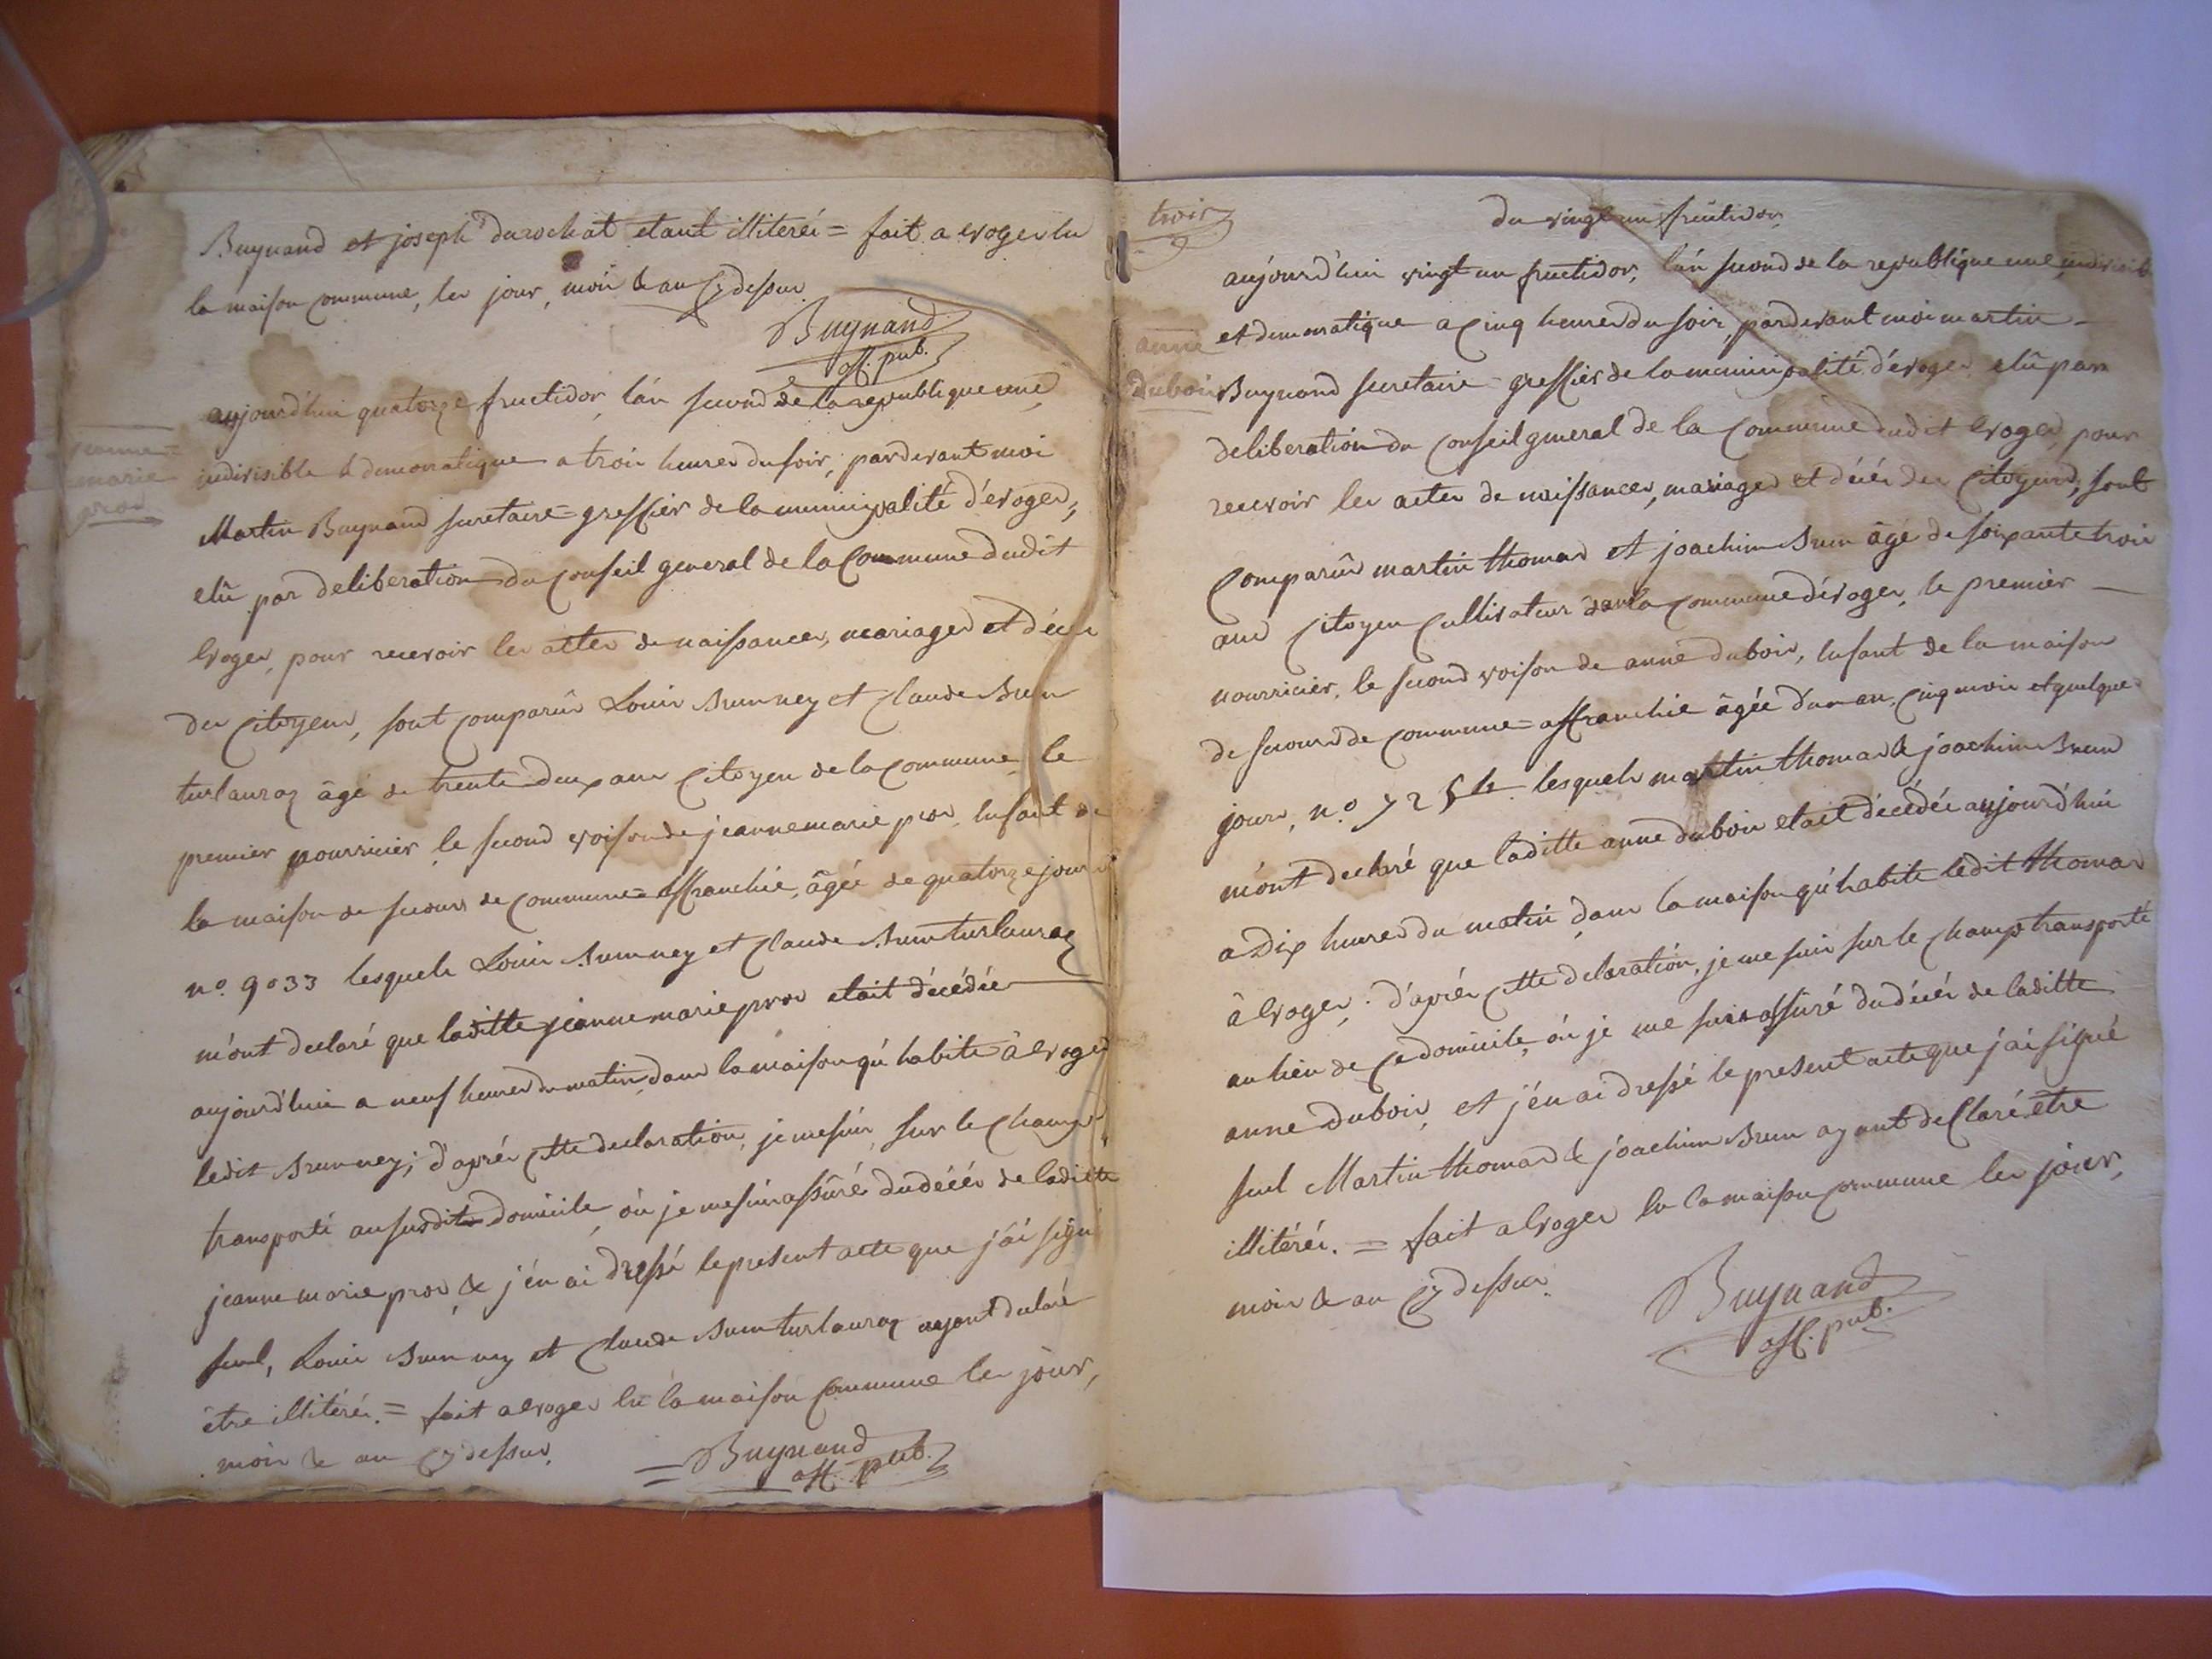 Buynand et joseph durochat etant illiterés = fait a evoges en
la maison commune, les jour, mois & an cy dessus.
Buynand
off. pub.
jeanne =
marie
pros
aujourd'hui quatorze fructidor, l'an second de la republique une,
indivisible & democratique a trois heures du soir, pardevant moi
Martin Buynand secretaire = greffier de la municipalité d'évoges,
elû par deliberation du conseil general de la Commune dudit
Evoges, pour recevoir les actes de naissances, mariages et décès
des Citoyens, sont comparûs Louis Brun ney et Claude Brun
turlauraz âgé de trente deux ans Citoyen de la commune, le
premier nourricier, le second voison de jeanne marie pros, enfant de
la maison de secours de commune = affranchie, âgée de quatorze jours
n.o 9033 lesquels Louis Brun ney et Claude Brun turlauraz
m'ont declaré que laditte jeanne marie pros etait décédée
aujourd'hui a neuf heures du matin, dans la maison qu'habite à Evoges
ledit Brun ney; d'après cette declaration, je me suis sur le champs
transporté au susdit domicile, où je me suis assûré du décés de laditte
jeanne marie pros & j'en ai dressé le present acte que j'ai signé
seul, Louis Brun ney et Claude Brun turlauraz ayant declaré
être illitérés. = fait a evoges en la maison commune les jour,
mois & an cy dessus.
= Buynand
off. pub.
trois
du vingt un fructidor,
aujourd'hui vingt un fructidor, l'an second de la republique une, indivisib
anne
dubois
et democratique a cinq heures du soir, pardevant moi martin
Buynand secretaire = greffier de la municipalité d'évoges elû par
deliberation du conseil general de la Commune dudit Evoges, pour
recevoir les actes de naissances, mariages et décés des Citoyens, sont
comparûs martin thomas et joachim Brun âgé de soixante trois
ans Citoyen Cultivateur dans la commune d'évoges, le premier
nourricier, le second voison de anne dubois, enfant de la maison
de secours de commune = affranchie âgée d'un an, cinq mois et quelques
jours, n.o 725 lesquels martin thomas & joachim Brun
m'ont declaré que laditte anne dubois etait décédée aujourd'hui
a Dix heures du matin, dans la maison qu'habite ledit thomas
à Evoges; d'après cette declaration, je me suis sur le champs transporté
au lieu de ce domicile, où je me suis assuré du décés de laditte
anne dubois, et j'en ai dressé le present acte que j'ai signé
seul Martin thomas & joachim Brun ayant declaré être
illitérés. = fait a Evoges en la maison commune les jour,
mois & an cy dessus.
Buynand
off. pub.